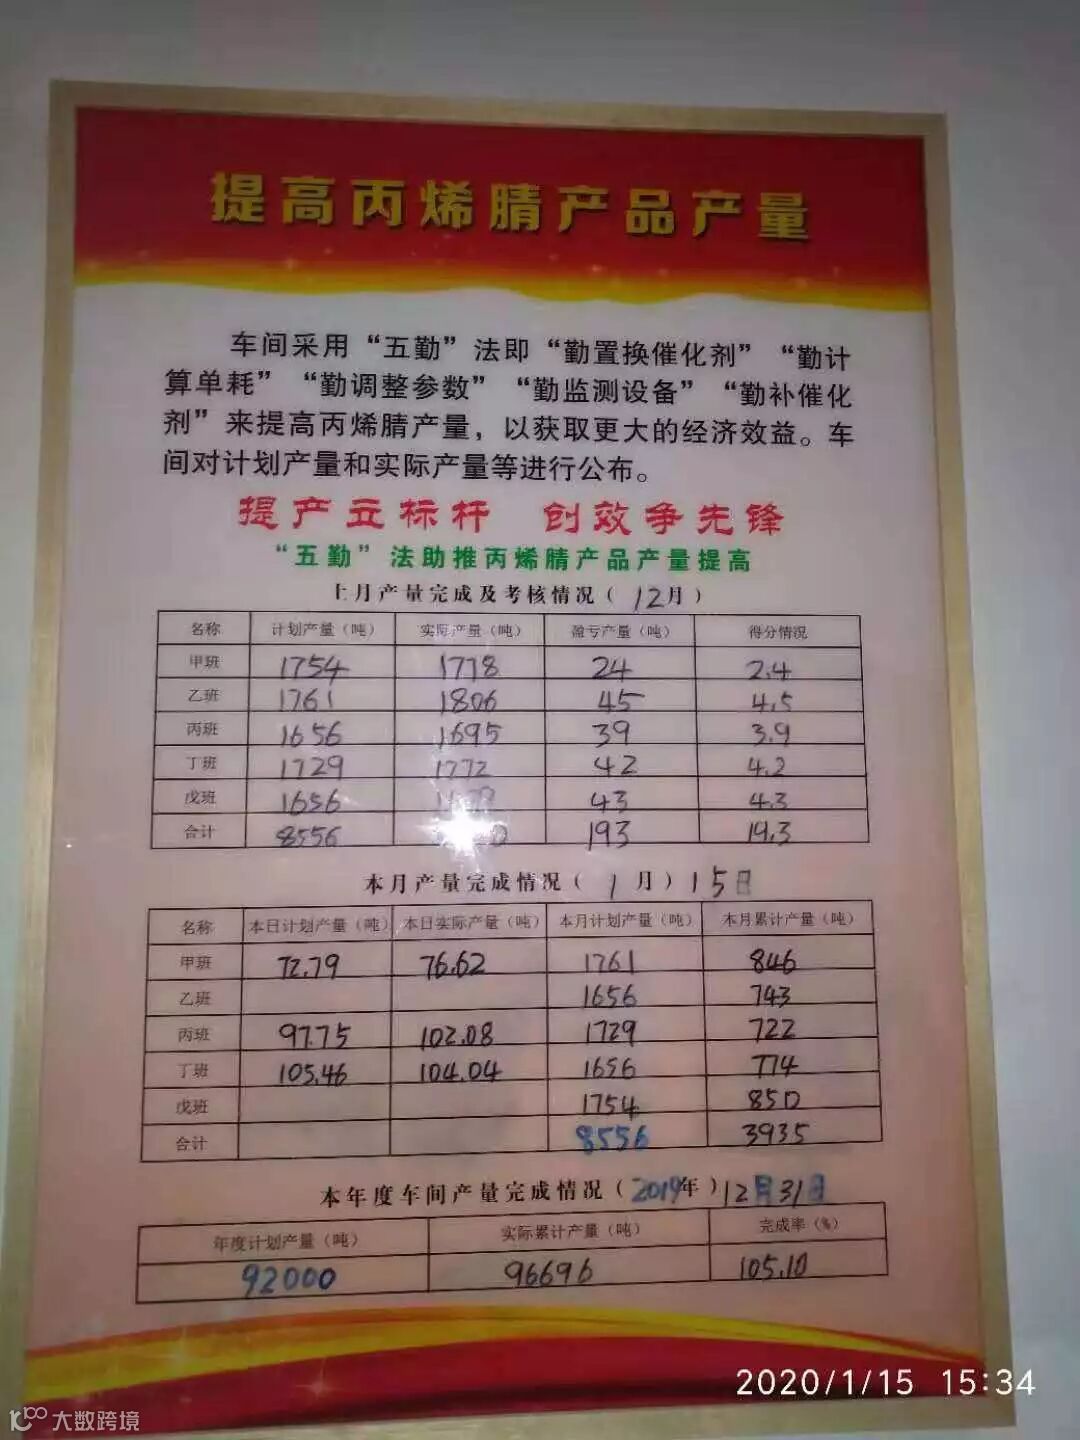 提高丙烯腈产品产量
车间采用“五勤”法即“勤置换催化剂”“勤计
算单耗”“勤调整参数”“勤监测设备”“勤补催化
剂”来提高丙烯腈产量，以获取更大的经济效益。车
间对计划产量和实际产量等进行公布。
提产立标杆 创效争先锋
“五勤”法助推丙烯腈产品产量提高
上月产量完成及考核情况（12月）
名称 计划产量（吨） 实际产量（吨） 盈亏产量（吨） 得分情况
甲班 1754 1778 24 2.4
乙班 1761 1806 45 4.5
丙班 1656 1695 39 3.9
丁班 1729 1772 42 4.2
戊班 1656 43 4.3
合计 8556 193 19.3
本月产量完成情况（1月）15日
名称 本日计划产量（吨） 本日实际产量（吨） 本月计划产量（吨） 本月累计产量（吨）
甲班 72.79 76.62 1761 846
乙班 1656 743
丙班 97.75 102.08 1729 722
丁班 105.46 104.04 1656 774
戊班 1754 850
合计 8556 3935
本年度车间产量完成情况（2019年）12月31日
年度计划产量（吨） 实际累计产量（吨） 完成率（%）
92000 96696 105.10
2020/1/15 15:34
大数跨境